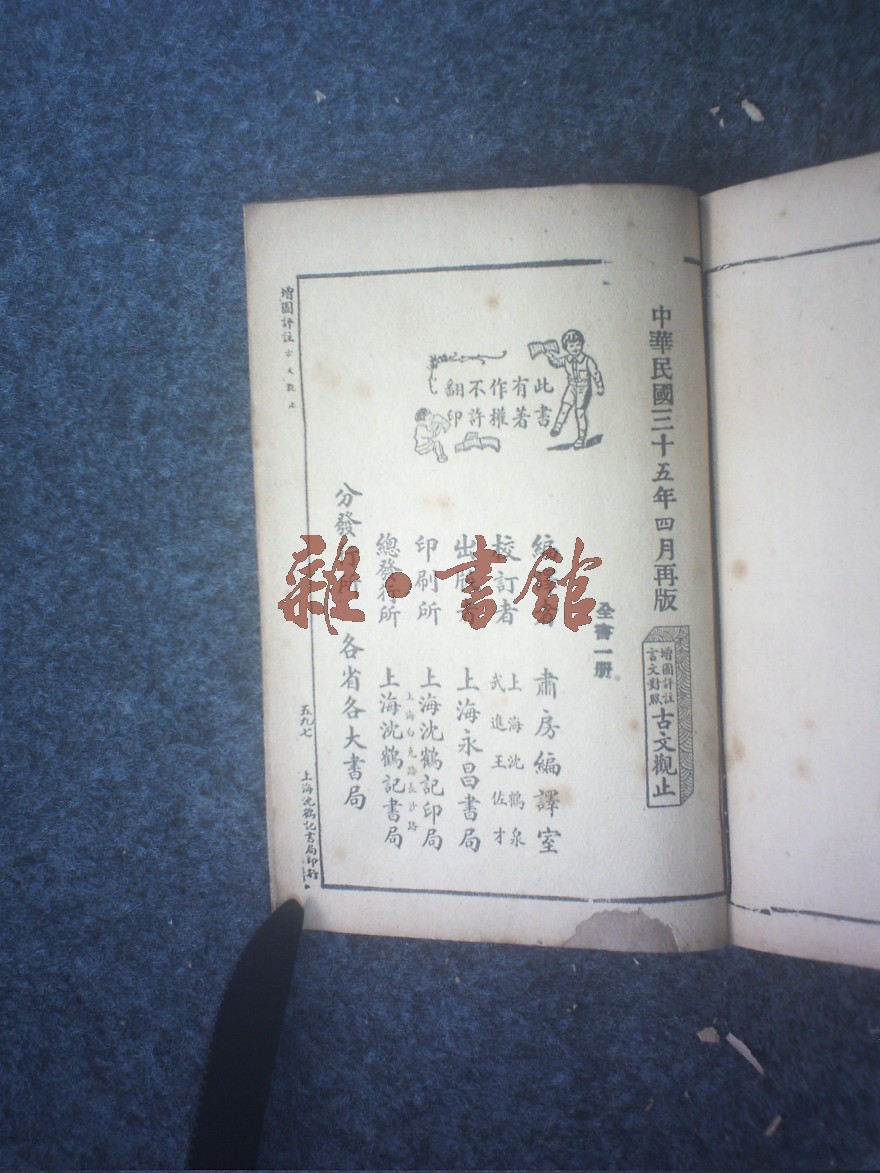 中華民國三十五年四月再版
增圖評註
言文對照
古文觀止
全書一册
此書
有著
作權
不許
翻印
肅房編譯室
校訂者
上海沈鶴泉
武進王佐才
出版者
上海永昌書局
印刷所
上海沈鶴記印局
總發行所
上海白克路長沙路
上海沈鶴記書局
分發行所
各省各大書局
增圖評註古文觀止
五九七
上海沈鶴記書局印行
雜·書館